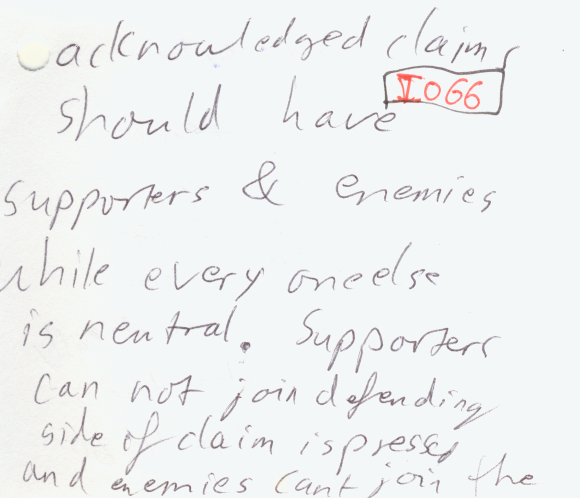 acknowledged claims
I066
should have
supporters & enemies
while every oneelse
is neutral. Supporters
can not join defending
side of claim is pressed
and enemies cant join the